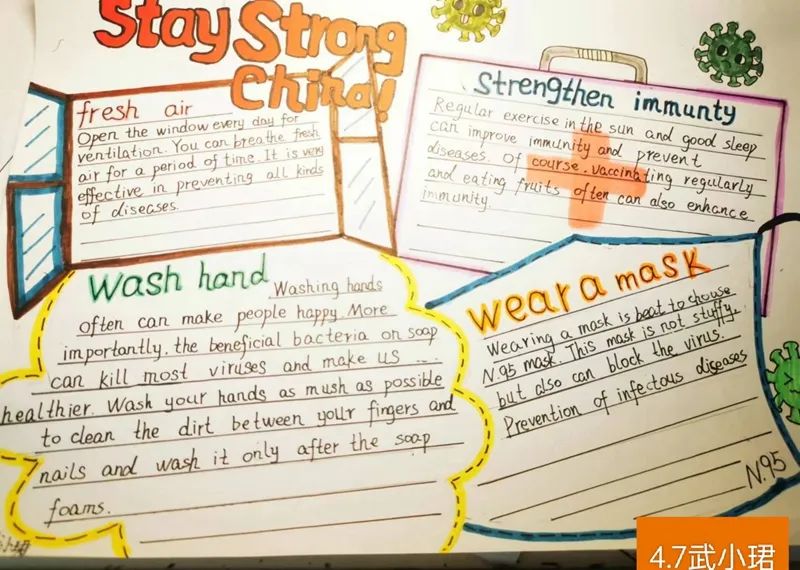 Stay Strong
China!
fresh air
Open the window every day for
ventilation. You can breathe fresh
air for a period of time. It is very
effective in preventing all kinds
of diseases.
Strengthen immunty
Regular exercise in the sun and good sleep
can improve immunity and prevent
diseases. Of course, vaccinating regularly
and eating fruits often can also enhance
immunity.
Wash hand
Washing hands
often can make people happy. More
importantly, the beneficial bacteria on soap
can kill most viruses and make us ...
healthier. Wash your hands as mush as possible
to clean the dirt between your fingers and
nails and wash it only after the soap
foams.
wear a mask
Wearing a mask is beat to chouse
N.95 mask. This mask is not stuffy,
but also can block the virus.
Prevention of infectous diseases
N.95
4.7武小珺